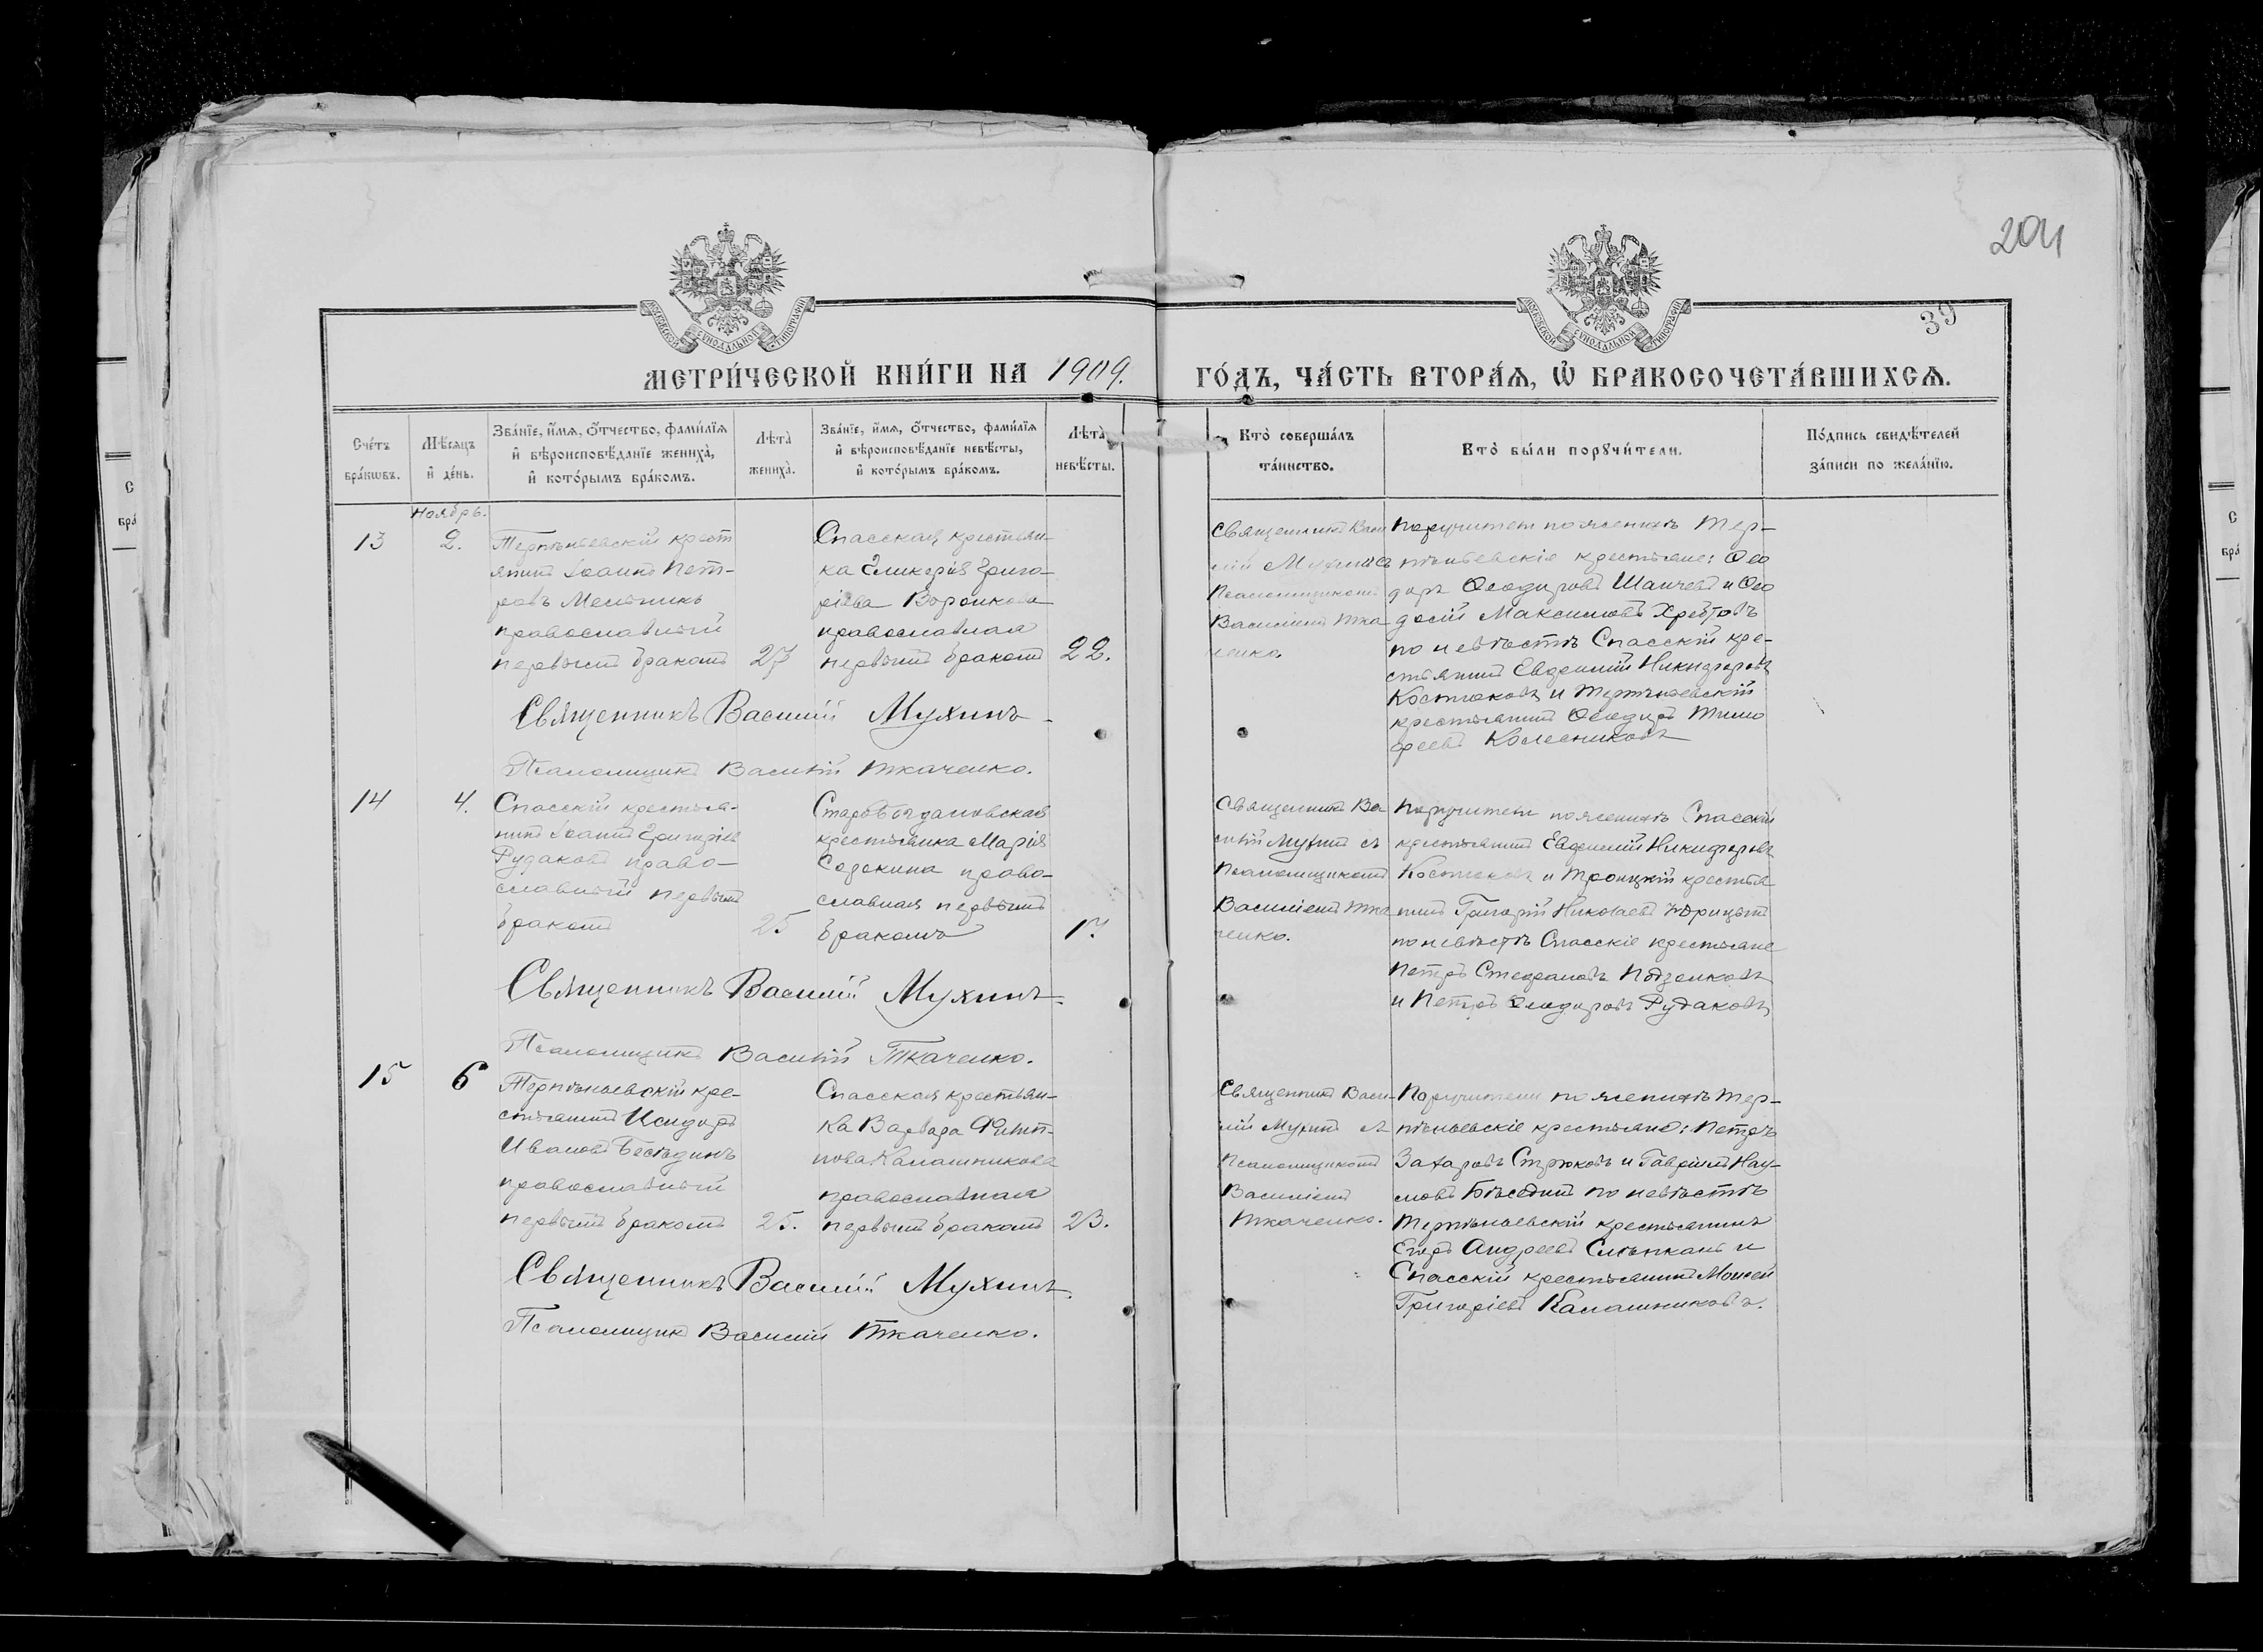 204
39
МОСКОВСКОЙ СѴНОДАЛЬНОЙ ТИПОГРАФІИ
МОСКОВСКОЙ СѴНОДАЛЬНОЙ ТИПОГРАФІИ
МЕТРИ́ЧЕСКОЙ КНИ́ГИ НА 1909. ГО́ДЪ, ЧА́СТЬ ВТОРА́Ѧ, Ѽ БРАКОСОЧЕТА́ВШИХСѦ.
Сче́тъ бра́кѡвъ.
Мѣ́сѧцъ и҆ де́нь.
Зва́нїе, и҆́мѧ, ѻ҆́тчество, фами́лїѧ
и҆ вѣроисповѣ́данїе жениха̀,
и҆ кото́рымъ бра́комъ.
Лѣта̀ жениха̀.
Зва́нїе, и҆́мѧ, ѻ҆́тчество, фами́лїѧ
и҆ вѣроисповѣ́данїе невѣ́сты,
и҆ кото́рымъ бра́комъ.
Лѣта̀ невѣ́сты.
Кто̀ соверша́лъ
та́инство.
Кто̀ бы́ли порꙋчи́тели.
По́дпись свидѣ́телей
за́писи по жела́нїю.
Ноябрь.
13
2.
Терпѣньевскій крест
янинъ Іоаннъ Пет-
ровъ Мельникъ
православный
первымъ бракомъ
27
Спасская крестьян-
ка Гликерія Григо-
рьева Воронкова
православная
первымъ бракомъ
22.
Священникъ Васи
лій Мухинъ съ
Псаломщикомъ
Василіемъ Тка
ченко.
Поручители по женихѣ Тер-
пѣньевскіе крестьяне: Ѳео
доръ Ѳеодоровъ и Ѳео
досій Максимовъ Хребтовъ
по невѣстѣ Спасскій кре-
стьянинъ Евфимій Никифоровъ
Костюковъ и Терпѣньевскій
крестьянинъ Ѳеодоръ Тимо
феевъ Колесниковъ
Священникъ Василій Мухинъ
Псаломщикъ Василій Ткаченко.
14
4.
Спасскій крестья-
нинъ Іоаннъ Григорьевъ
Рудаковъ право-
славный первымъ
бракомъ
25
Старобогдановская
крестьянка Марія
право-
славная первымъ
бракомъ
17
Священникъ Ва
силій Мухинъ съ
Псаломщикомъ
Василіемъ Тка
ченко.
Поручители по женихѣ Спасскій
крестьянинъ Евфимій Никифоровъ
Костюковъ и Троицкій крестья
нинъ Григорій Николаевъ
по невѣстѣ Спасскіе крестьяне
Петръ Стефановъ
и Петръ Ѳеодоровъ Рудаковъ
Священникъ Василій Мухинъ.
Псаломщикъ Василій Ткаченко.
15
6
Терпѣньевскій кре-
стьянинъ Исидоръ
Ивановъ Бесѣдинъ
православный
первымъ бракомъ
25.
Спасская крестьян-
ка Варвара Филип-
пова Калашникова
православная
первымъ бракомъ
23.
Священникъ Васи-
лій Мухинъ съ
Псаломщикомъ
Василіемъ
Ткаченко.
Поручители по женихѣ Тер-
пѣньевскіе крестьяне: Петръ
Захаровъ Стрюковъ и Гавріилъ Нау-
мовъ Бѣседин по невѣстѣ
Терпѣньевскій крестьянинъ
Егоръ Андреевъ и
Спасскій крестьянинъ Моисей
Григорьевъ Калашниковъ.
Священникъ Василій Мухинъ.
Псаломщикъ Василій Ткаченко.